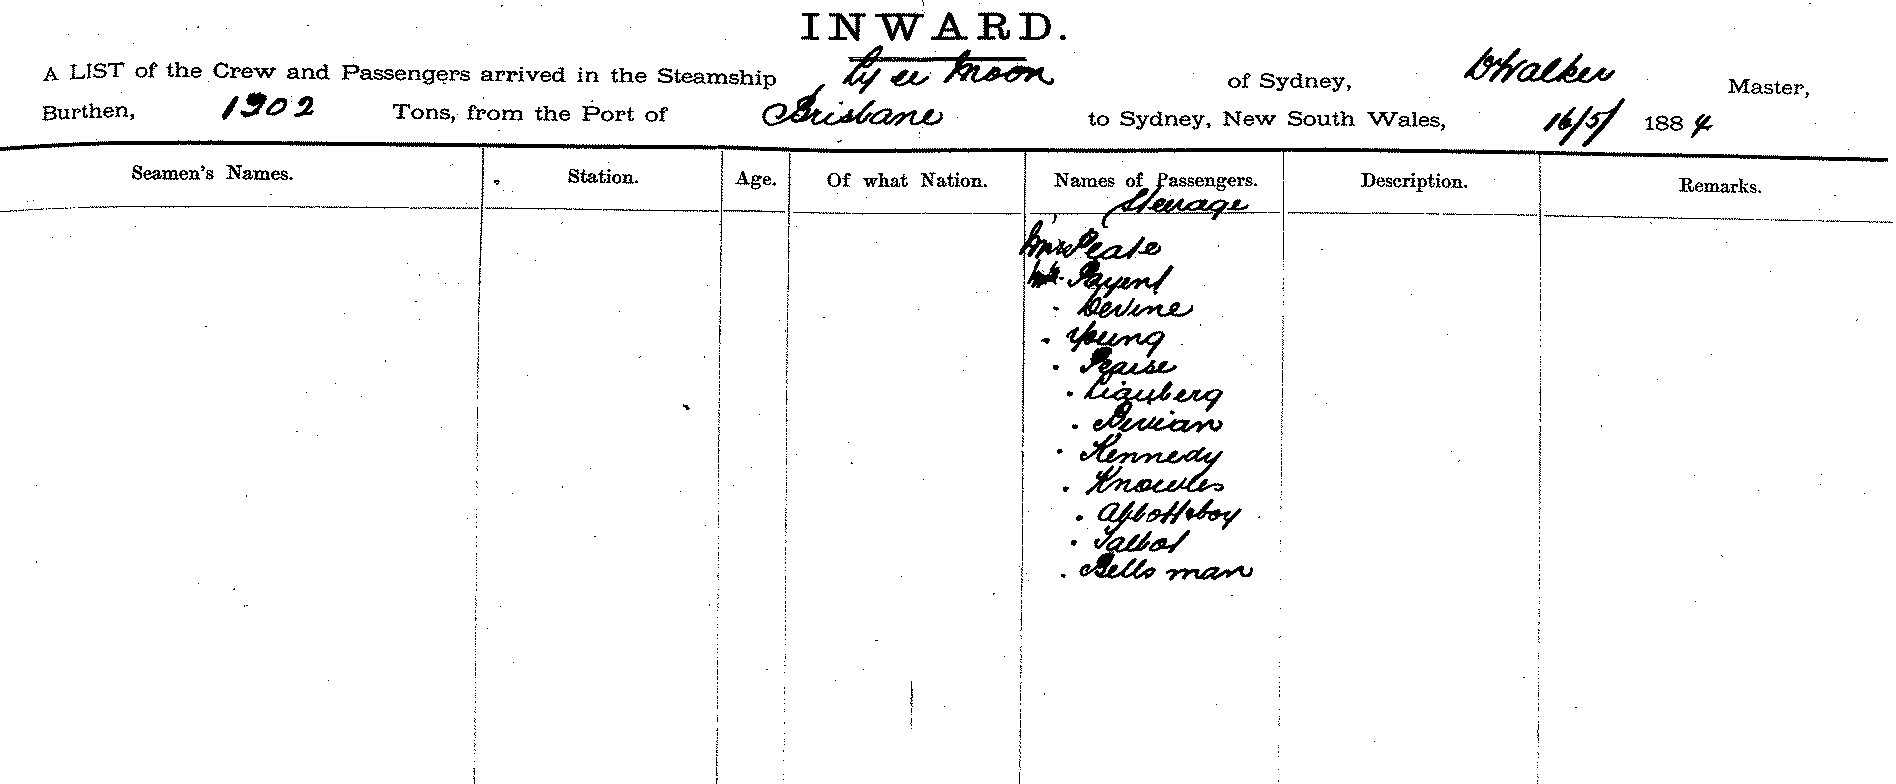 INWARD.
A LIST of the Crew and Passengers arrived in the Steamship Ly ee Moon of Sydney, D Walker Master,
Burthen, 1902 Tons, from the Port of Brisbane to Sydney, New South Wales, 16/5/ 1884
Seamen's Names. Station. Age. Of what Nation. Names of Passengers. Description. Remarks.
Steerage
Mrs Peate
Mr.
. Devine
. Young
. Praise
.
.
. Kennedy
. Knowles
. Abbott & boy
. Talbot
. Bells man